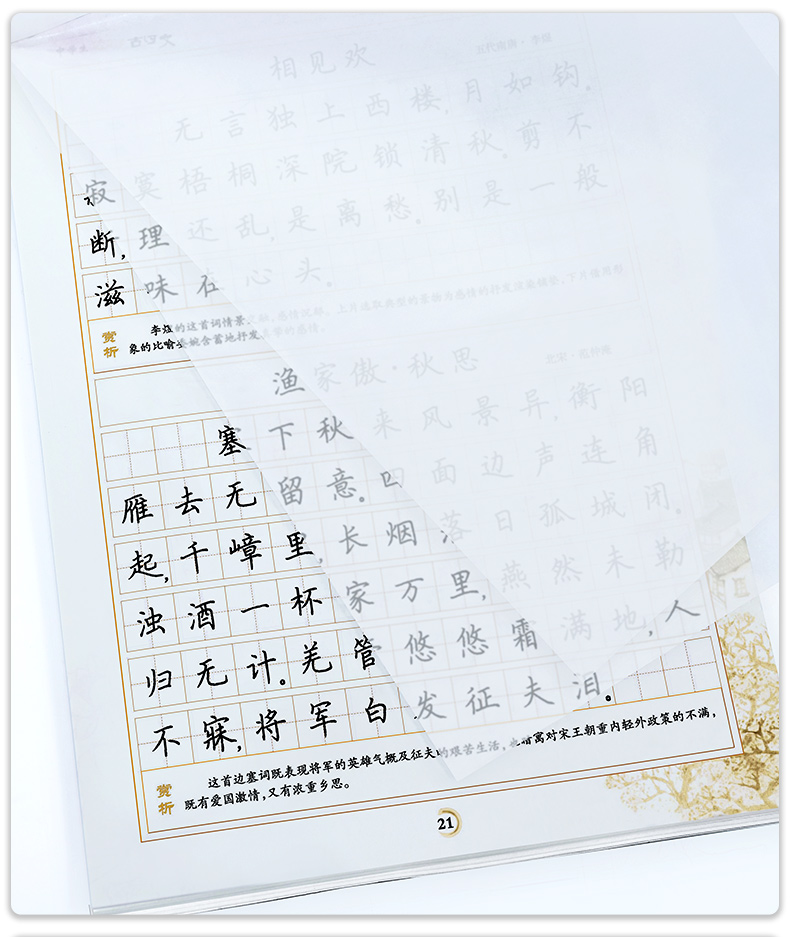 中学生 古诗文
五代南唐·李煜
相见欢
无言独上西楼,月如钩。
寂寞梧桐深院锁清秋。剪不
断,理还乱,是离愁。别是一般
滋味在心头。
赏析
李煜的这首词情景 感情沉郁。上片选取典型的景物为感情的抒发渲染铺垫,下片借用形
象的比喻委婉含蓄地抒发真挚的感情。
渔家傲·秋思
北宋·范仲淹
塞下秋来风景异,衡阳
雁去无留意。四面边声连角
起,千嶂里,长烟落日孤城闭。
浊酒一杯家万里,燕然未勒
归无计。羌管悠悠霜满地,人
不寐,将军白发征夫泪。
赏析
这首边塞词既表现将军的英雄气概及征夫的艰苦生活,也暗寓对宋王朝重内轻外政策的不满,
既有爱国激情,又有浓重乡思。
21